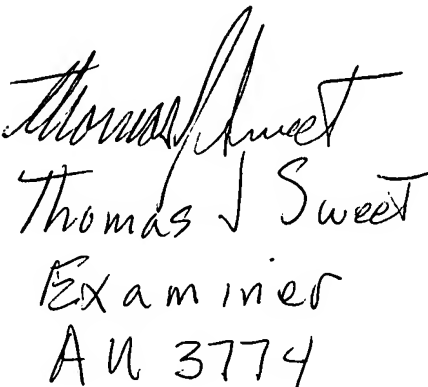 Thomas J Sweet
Thomas J Sweet
Examiner
AU 3774